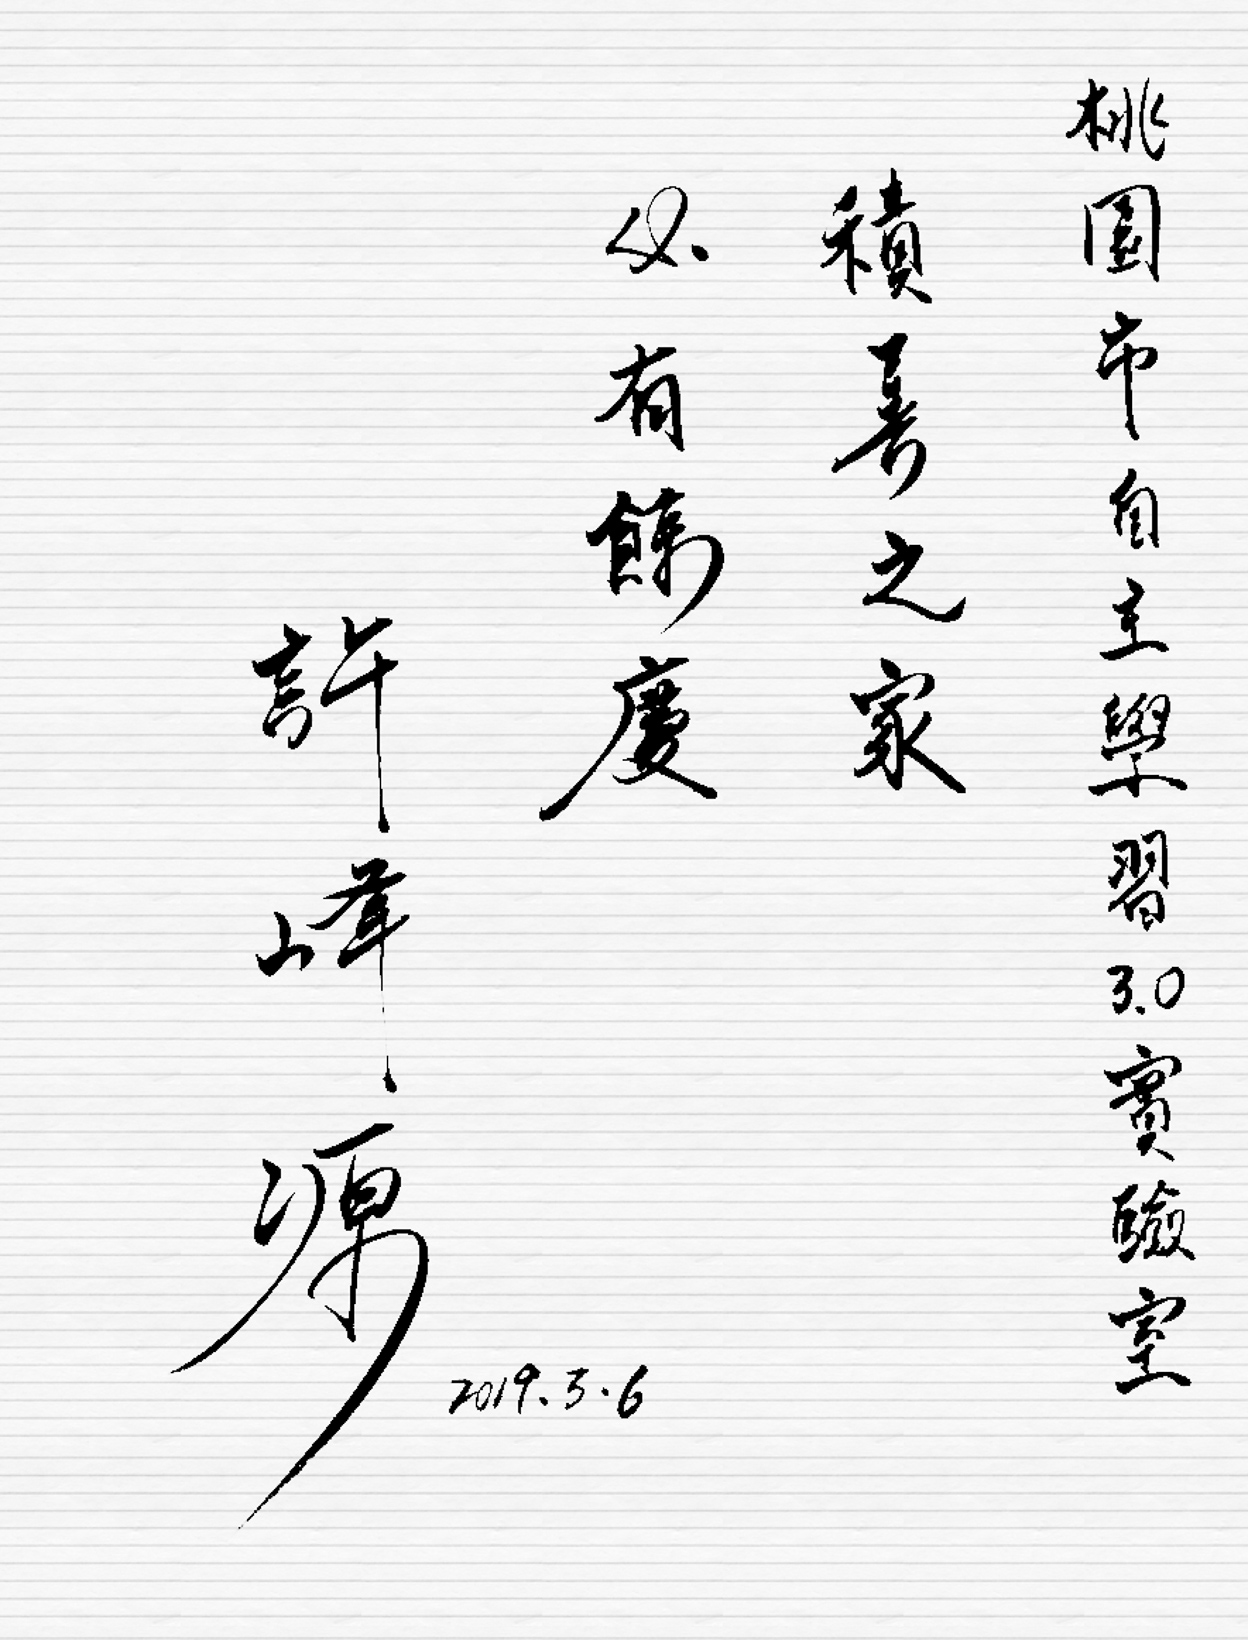 桃園市自主學習3.0實驗室
積善之家
必有餘慶
許峰源
2019.3.6